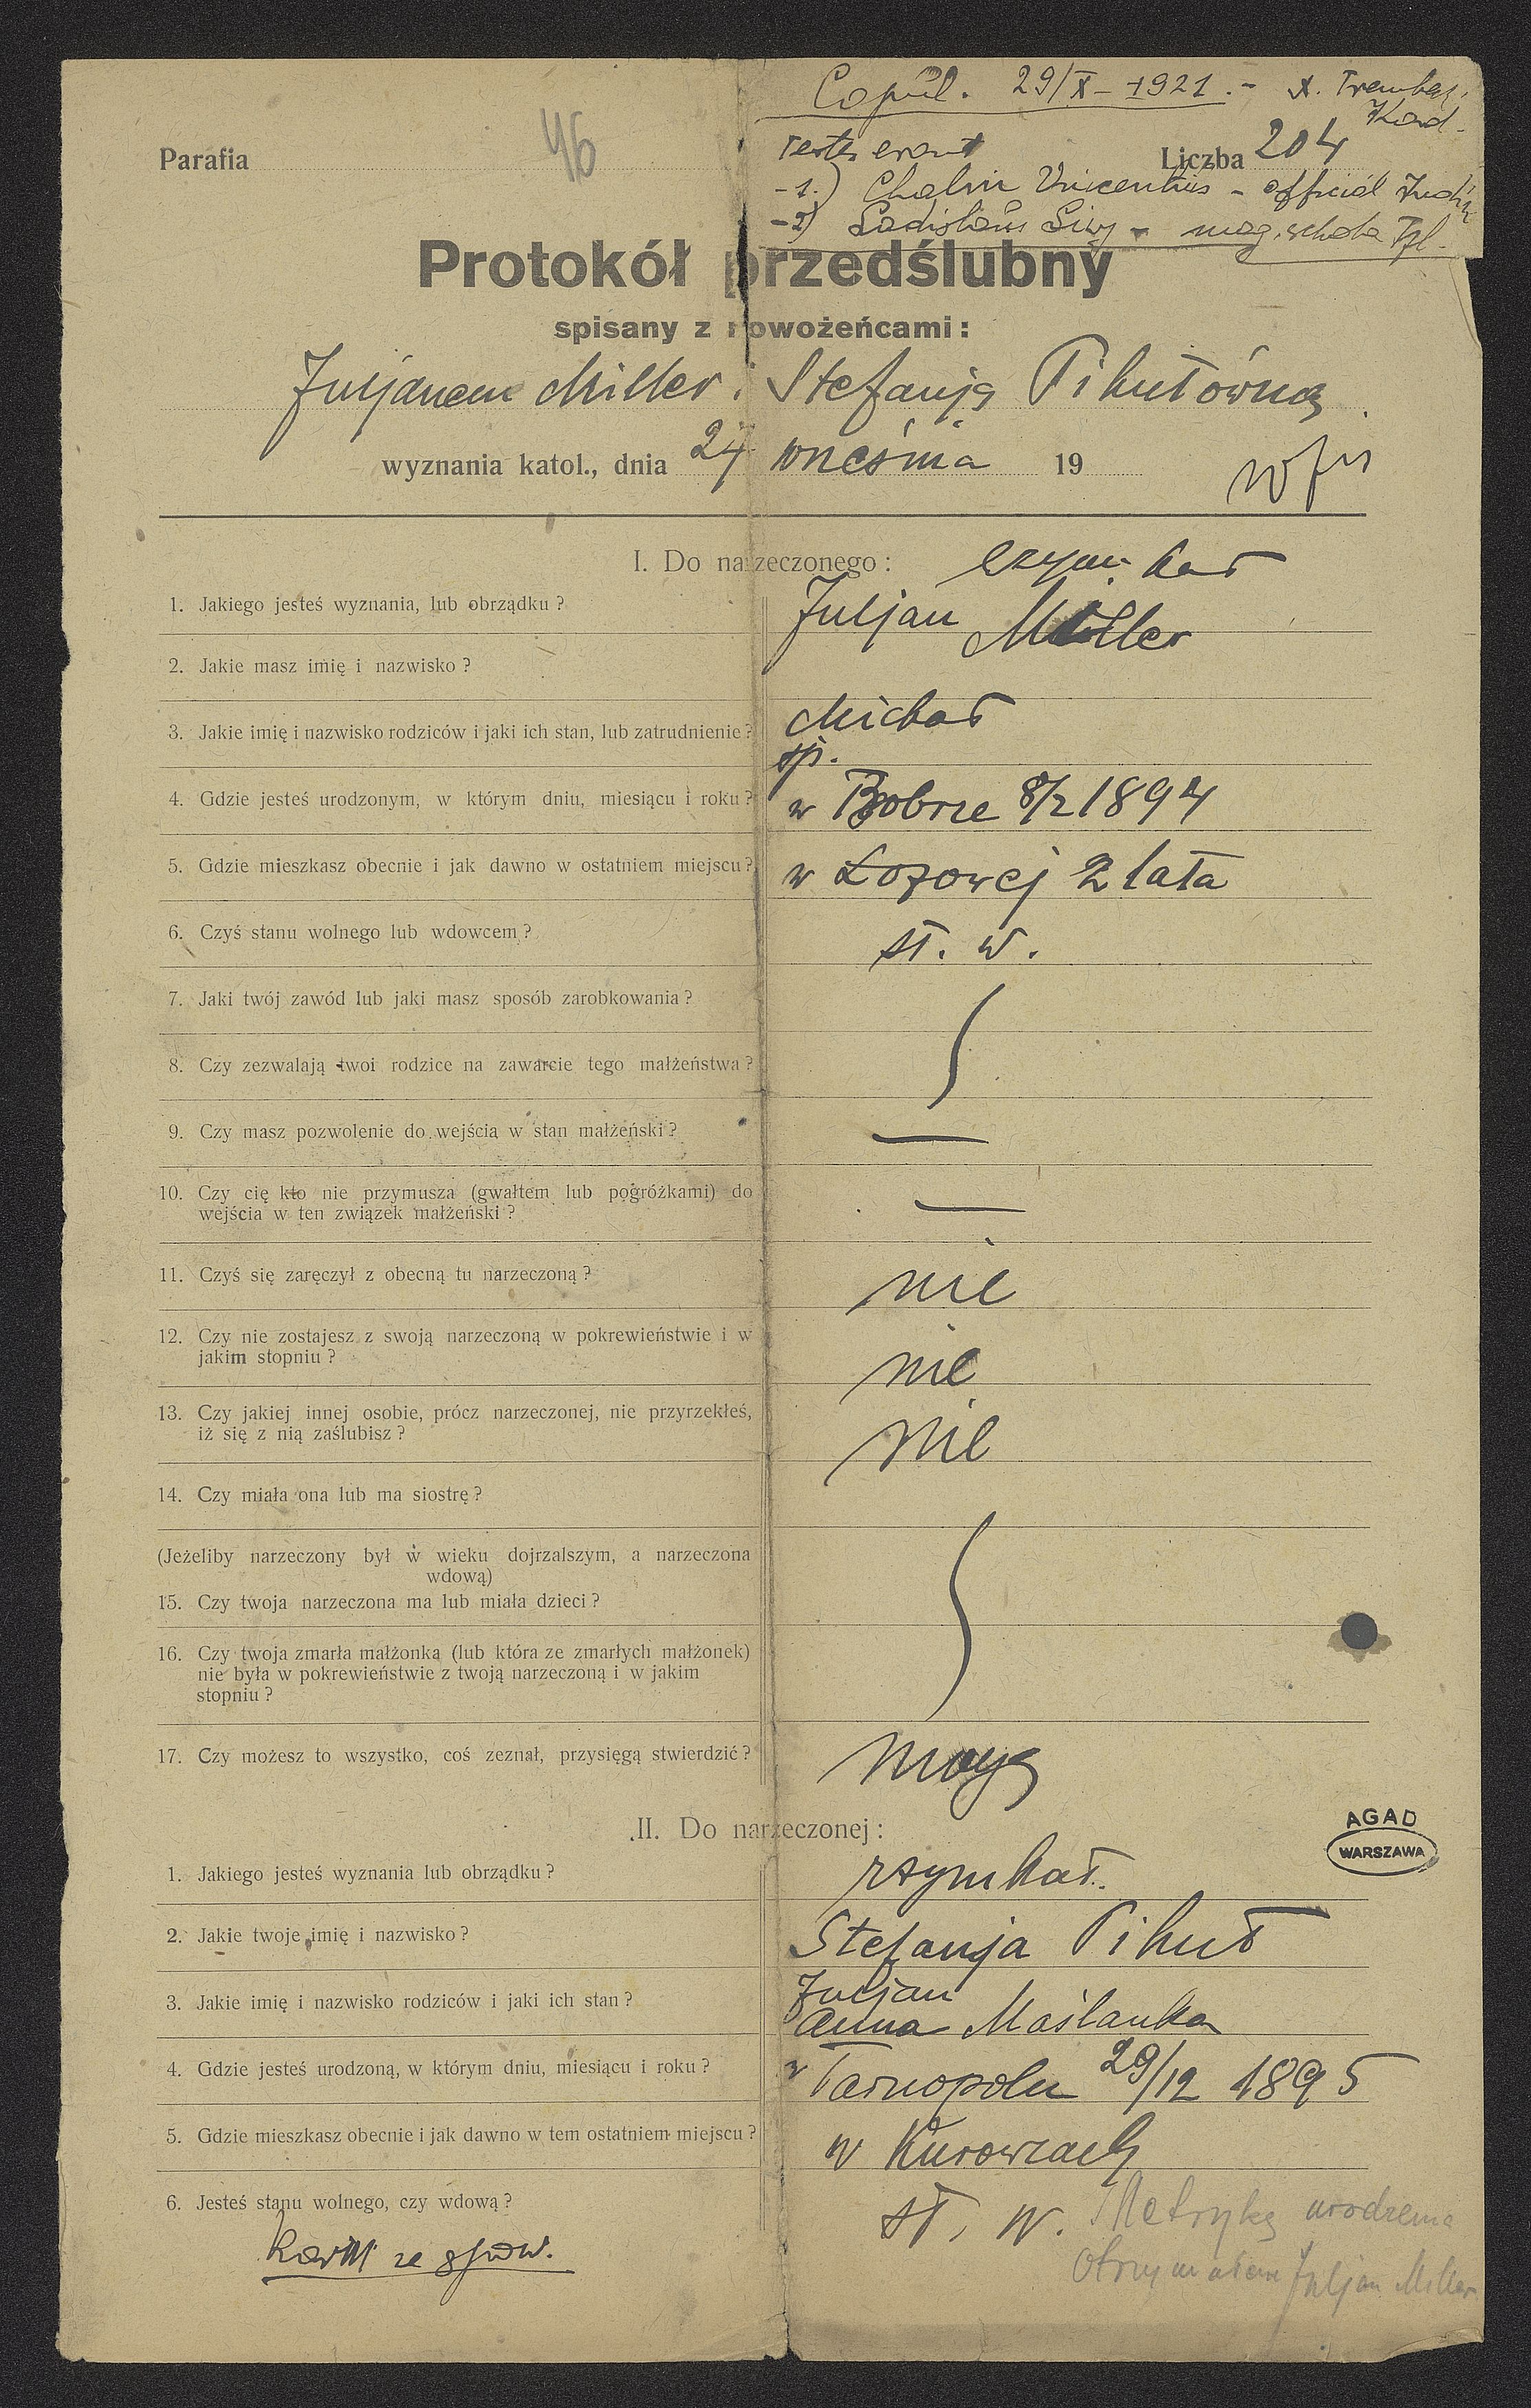 Copul. 29/X - 1921. - X.
46
Parafia
Testes erant
Liczba 204
-1.) Vincentius - official
-2)
Protokół przedślubny
spisany z nowożeńcami:
Juljanem Miller i Stefanją Pikutówną
wyznania katol., dnia 27 wneśnia 19
I. Do narzeczonego:
1. Jakiego jesteś wyznania, lub obrządku?
Juljan Miller
2. Jakie masz imię i nazwisko?
3. Jakie imię i nazwisko rodziców i jaki ich stan, lub zatrudnienie? Michał
sp.
4. Gdzie jesteś urodzonym, w którym dniu, miesiącu i roku? w Bobrze 8/2 1894
5. Gdzie mieszkasz obecnie i jak dawno w ostatniem miejscu? w Łozowej 2 lata
6. Czyś stanu wolnego lub wdowcem? st. w.
7. Jaki twój zawód lub jaki masz sposób zarobkowania?
8. Czy zezwalają twoi rodzice na zawarcie tego małżeństwa?
9. Czy masz pozwolenie do wejścia w stan małżeński? —
10. Czy cię kto nie przymusza (gwałtem lub pogróżkami) do
wejścia w ten związek małżeński? —
11. Czyś się zaręczył z obecną tu narzeczoną? nie
12. Czy nie zostajesz z swoją narzeczoną w pokrewieństwie i w
jakim stopniu? nie
13. Czy jakiej innej osobie, prócz narzeczonej, nie przyrzekłeś,
iż się z nią zaślubisz? nie
14. Czy miała ona lub ma siostrę?
(Jeżeliby narzeczony był w wieku dojrzalszym, a narzeczona
wdową)
15. Czy twoja narzeczona ma lub miała dzieci?
16. Czy twoja zmarła małżonka (lub która ze zmarłych małżonek)
nie była w pokrewieństwie z twoją narzeczoną i w jakim
stopniu?
17. Czy możesz to wszystko, coś zeznał, przysięgą stwierdzić? mogę
II. Do narzeczonej:
AGAD
WARSZAWA
1. Jakiego jesteś wyznania lub obrządku? rzym kat.
2. Jakie twoje imię i nazwisko? Stefanja Pikuł
Juljan
3. Jakie imię i nazwisko rodziców i jaki ich stan? Anna Maślanka
4. Gdzie jesteś urodzoną, w którym dniu, miesiącu i roku? w Tarnopolu 29/12 1895
5. Gdzie mieszkasz obecnie i jak dawno w tem ostatniem miejscu? w Kurowcach
6. Jesteś stanu wolnego, czy wdową? st. w. Metrykę urodzenia
otrzymałem Juljan Miller